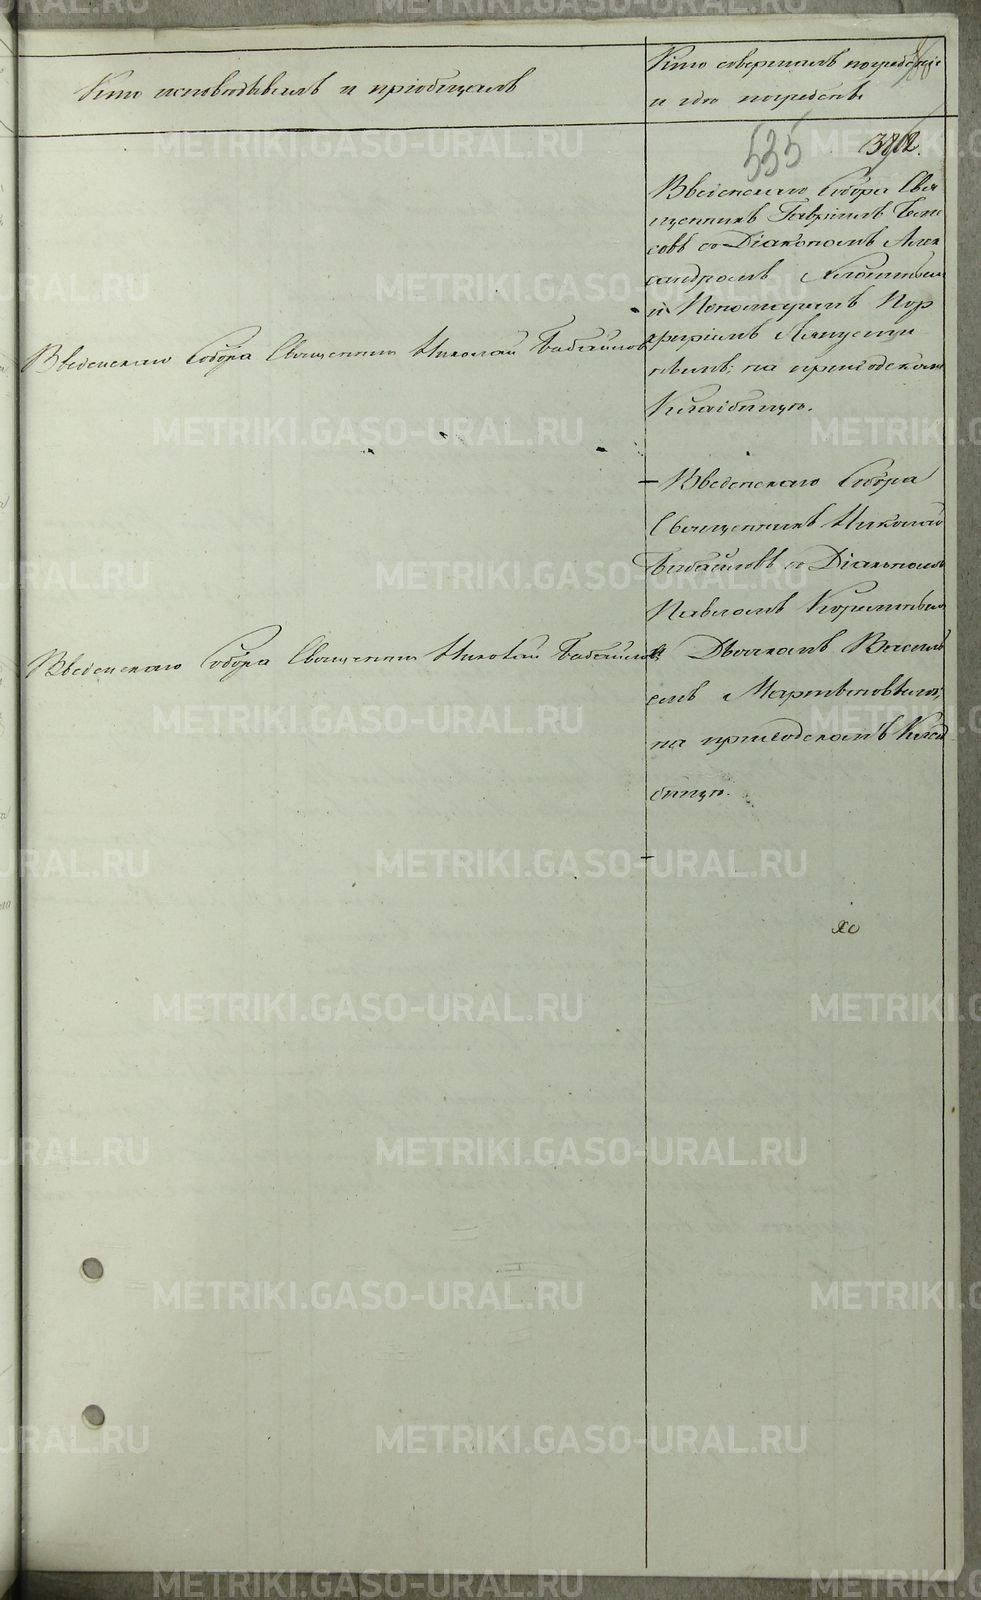 Кто исповѣдывалъ и пріобщалъ
Кто совершалъ погребеніе
и гдѣ погребенъ
535
382.
Введенскаго Собора Свя
щенникъ Гавріилъ
совъ съ Діакономъ Алек
сандромъ
и Пономаремъ Пор
фиріемъ
на приходскомъ
Кладбищѣ.
Введенскаго Собора Священникъ Николай Бабайловъ
Введенскаго Собора
Священникъ Николай
Бабайловъ съ Діакономъ
Павломъ
и Дьячкомъ Василь
емъ Мартыновымъ,
на приходскомъ Клад
бищѣ.
Введенскаго Собора Священникъ Николай Бабайловъ
METRIKI.GASO-URAL.RU